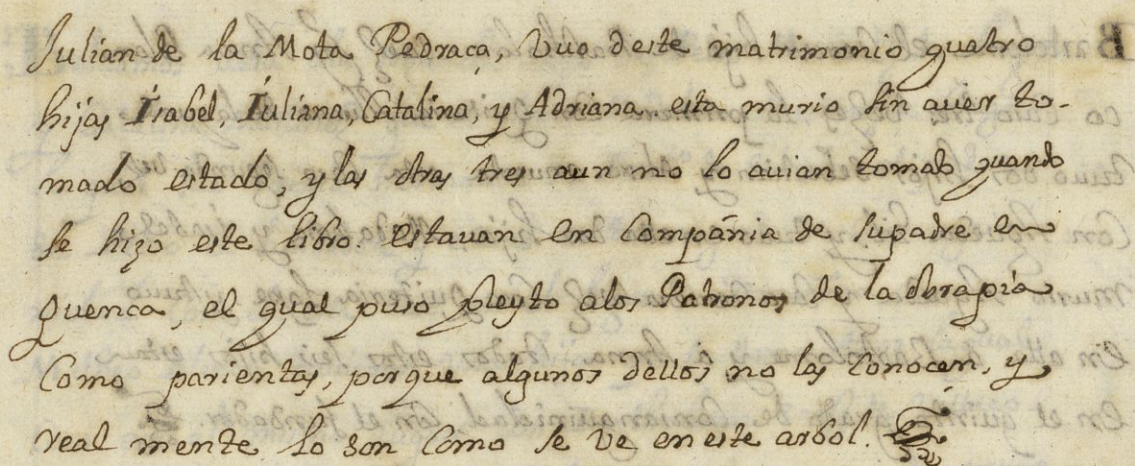 Iulian de la Mota Pedraça, Vuo deste matrimonio quatro
hijas Isabel, Iuliana, Catalina, y Adriana. esta murio sin auer to-
mado estado, y las otras tres aun no lo auian tomado quando
se hizo este libro. estauan en Compañia de su padre en
Quenca, el qual puso pleyto a los Patronos de la obra pia
Como parientas, porque algunos dellos no las Conocen, y
real mente lo son Como se Ve en este arbol.